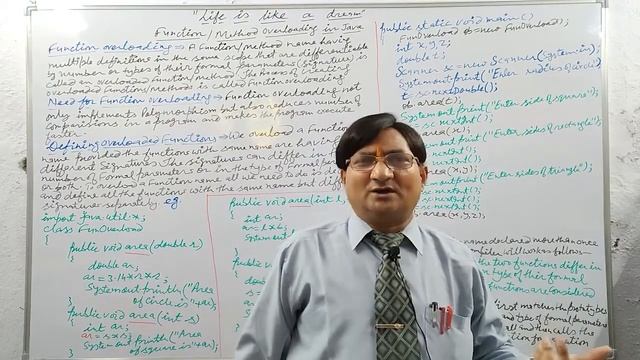 "Life is like a dream"
Function/Method Overloading in Java
Function overloading → A Function/method name having
multiple definitions in the same scope that are differentiable
by number or types of their formal parameters (signature) is
called an overloaded function/method. The Process of creating
overloaded functions/methods is called Function overloading.
Need for Function overloading → Function overloading not
only implements Polymorphism but also reduces number of
comparisions in a program and makes the program execute
faster.
Defining Overloaded Function → We overload a Function
name provided the functions with same name are having
different signatures. The signatures can differ in the
number of Formal parameters or in the type of formal
or both. To overload a function name all we need to do is
and define all the functions with the same name but diff
signatures separately eg.
import java.util.*;
class FunOverload
{
public void area(double r)
{
double ar;
ar=3.14*r*r;
System.out.println("Area
of Circle is"+ar);
}
public void area(int s)
{
int ar;
ar=s*s;
System.out.println("Area
of square is"+ar);
public void area(int l,
{
int ar;
ar=l*b;
System.out
}
public void
{
public static void main()
{
FunOverload ob=new FunOverload();
int x,y,z;
double r;
Scanner sc=new Scanner(System.in);
System.out.print("Enter radius of circle");
r=sc.nextDouble();
ob.area(r);
System.out.print("Enter side of square");
sc.nextInt();
area(x);
out.print("Enter sides of rectangle");
nextInt();
nextInt();
area(x,y);
out.print("Enter sides of triangle");
nextInt();
nextInt();
sc.nextInt();
area(x,y,z);
name declared more than once
compiler will work as follows-
the two functions differ in
type of their formal
functions are considered
first matches the prototypes
and type of formal parameters
call and then calls the